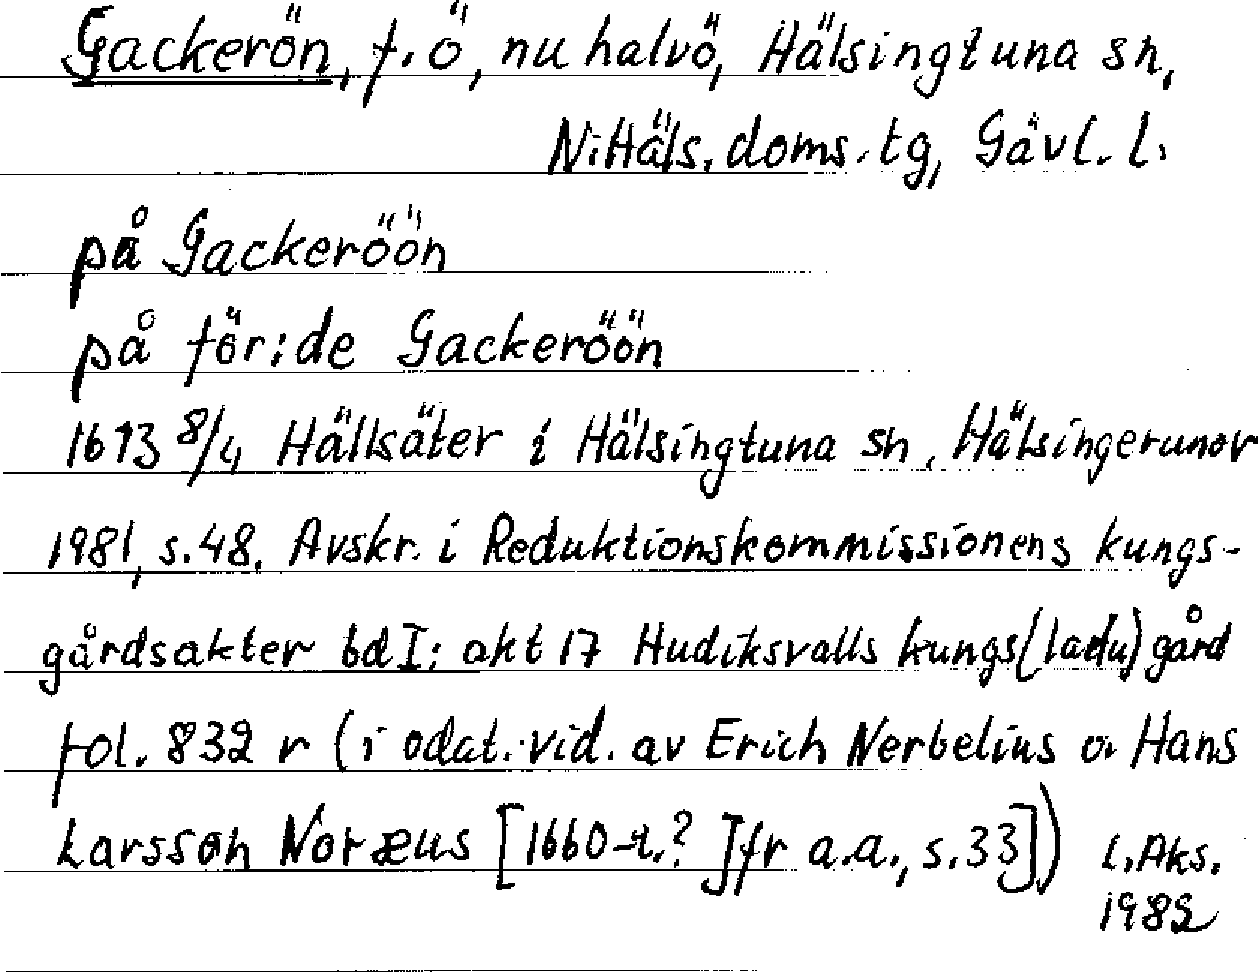 Gackerön, f.ö, nu halvö, Hälsingtuna sn,
N.Häls. doms. tg, Gävl. l.
på Gackeröön
på för:de Gackeröön
1613 8/4 Hällsäter i Hälsingtuna sn, Hälsingerunor
1981, s.48. Avskr. i Reduktionskommissionens kungs-
gårdsakter bd I: akt 17 Hudiksvalls kungs(ladu)gård
fol. 832 r (i odat. vid. av Erich Nerbelius o. Hans
Larsson Noræus [1660-t.? Jfr a.a., s.33]) L.Aks.
1982